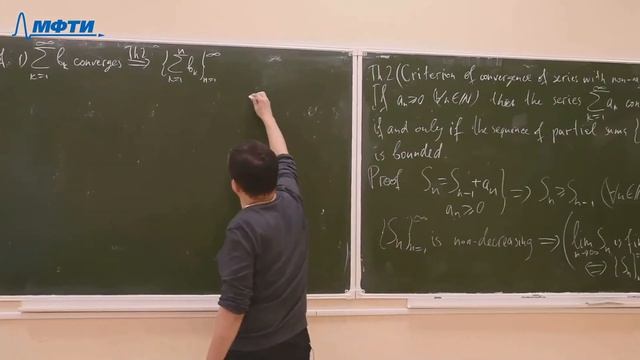 МФТИ
1) ∑_{k=1}^{∞} b_k converges ⟹^{Th2} {∑_{k=1}^{n} b_k}_{n=1}^{∞}
Th2 (Criterion of convergence of series with non-
If aₙ ≥ 0 (∀n∈ℕ) then the series ∑_{n=1}^{∞} aₙ
if and only if the sequence of partial sums {
is bounded.
Proof Sₙ = Sₙ₋₁ + aₙ
aₙ ≥ 0 } ⟹ Sₙ ≥ Sₙ₋₁ (∀n∈
{Sₙ}_{n=1}^{∞} is non-decreasing ⟹ (lim_{n→∞} Sₙ is
⟺ {S